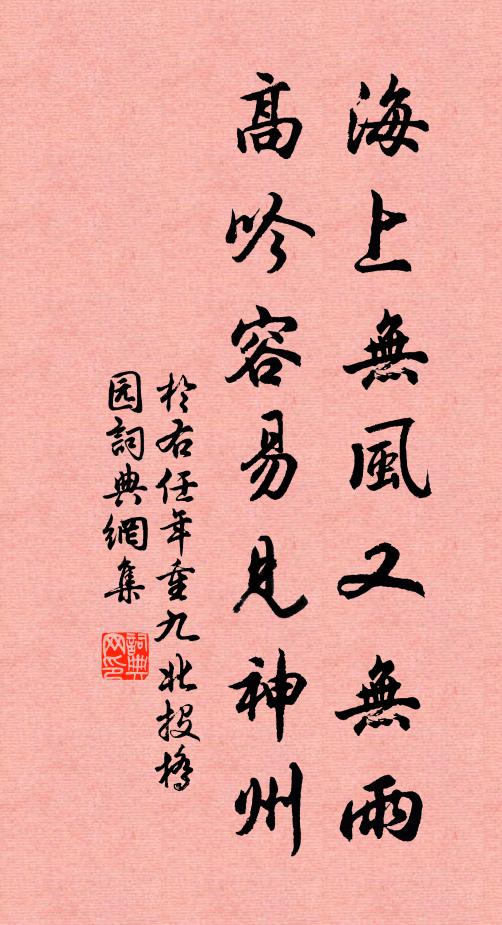 海上無風又無雨
高吟容易見神州
於右任年重九北投橋
园詞典網集
詞典网印